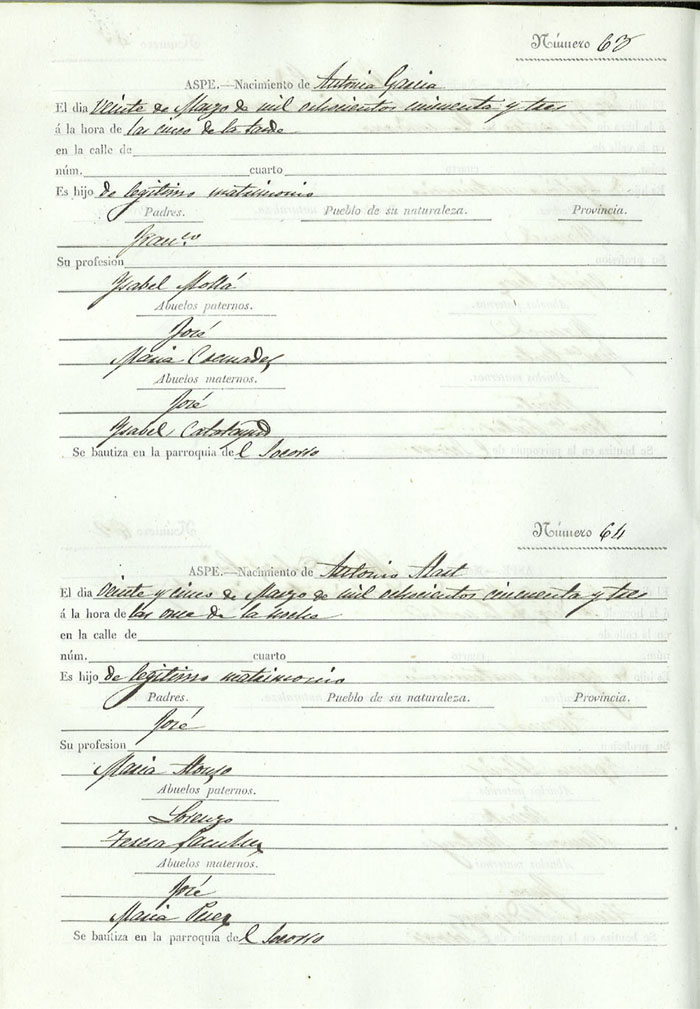 Número 63
ASPE.—Nacimiento de Antonia Garcia
El dia Veinte de Marzo de mil ochocientos cincuenta y tres
á la hora de las cinco de la tarde
en la calle de
núm. cuarto
Es hijo de legitimo matrimonio
Padres. Pueblo de su naturaleza. Provincia.
Franco
Su profesion
Isabel Mollá
Abuelos paternos.
José
Maria Cremades
Abuelos maternos.
José
Isabel Calatayud
Se bautiza en la parroquia del Socorro
Número 64
ASPE.—Nacimiento de Antonio
El dia Veinte y cinco de Marzo de mil ochocientos cincuenta y tres
á la hora de las once de la noche
en la calle de
núm. cuarto
Es hijo de legitimo matrimonio
Padres. Pueblo de su naturaleza. Provincia.
José
Su profesion
Maria Alonso
Abuelos paternos.
Lorenzo
Teresa
Abuelos maternos.
José
Maria Perez
Se bautiza en la parroquia del Socorro